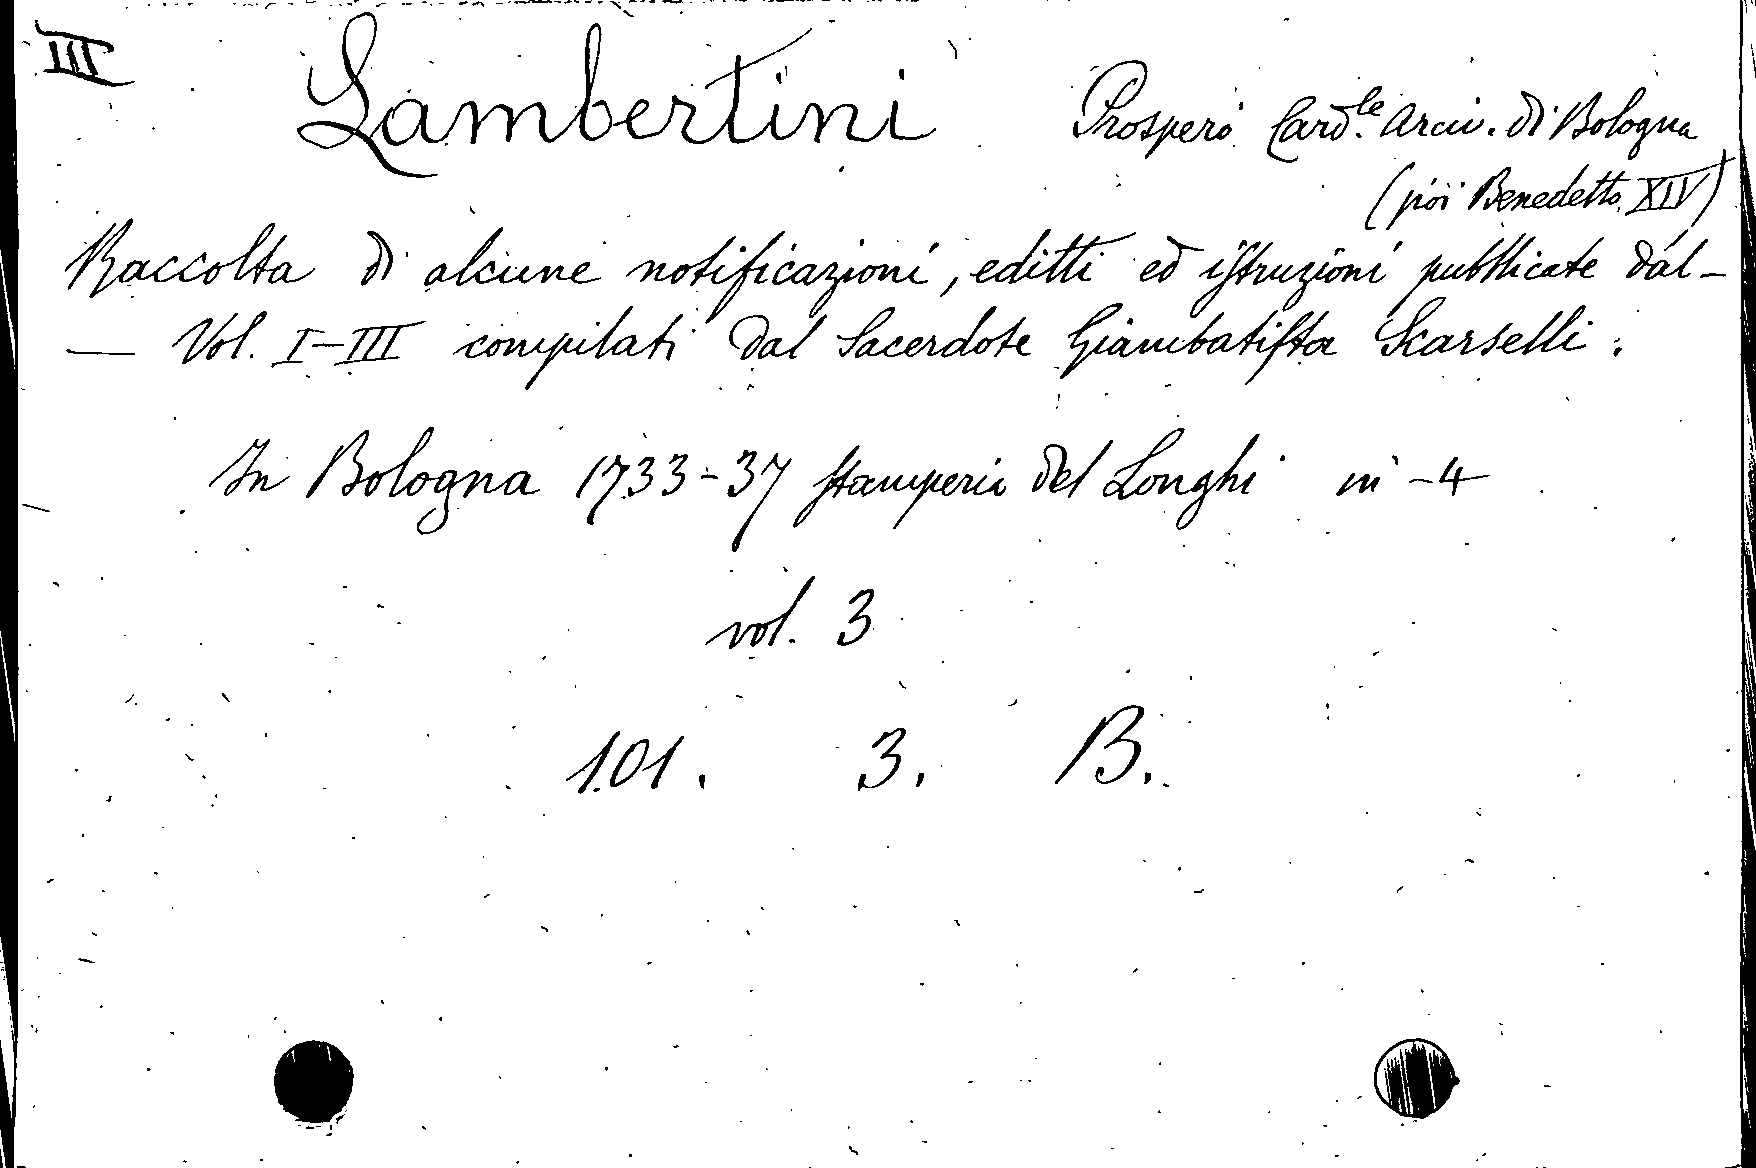 III
Lambertini Prospero Card.le Arciv. di Bologna
(poi Benedetto XIV)
Raccolta di alcune notificazioni, editti ed istruzioni pubblicate dal –
— Vol. I–III compilati dal Sacerdote Giambatista Scarselli.
In Bologna 1733-37 stamperia del Longhi in-4
vol. 3
101. 3. B.